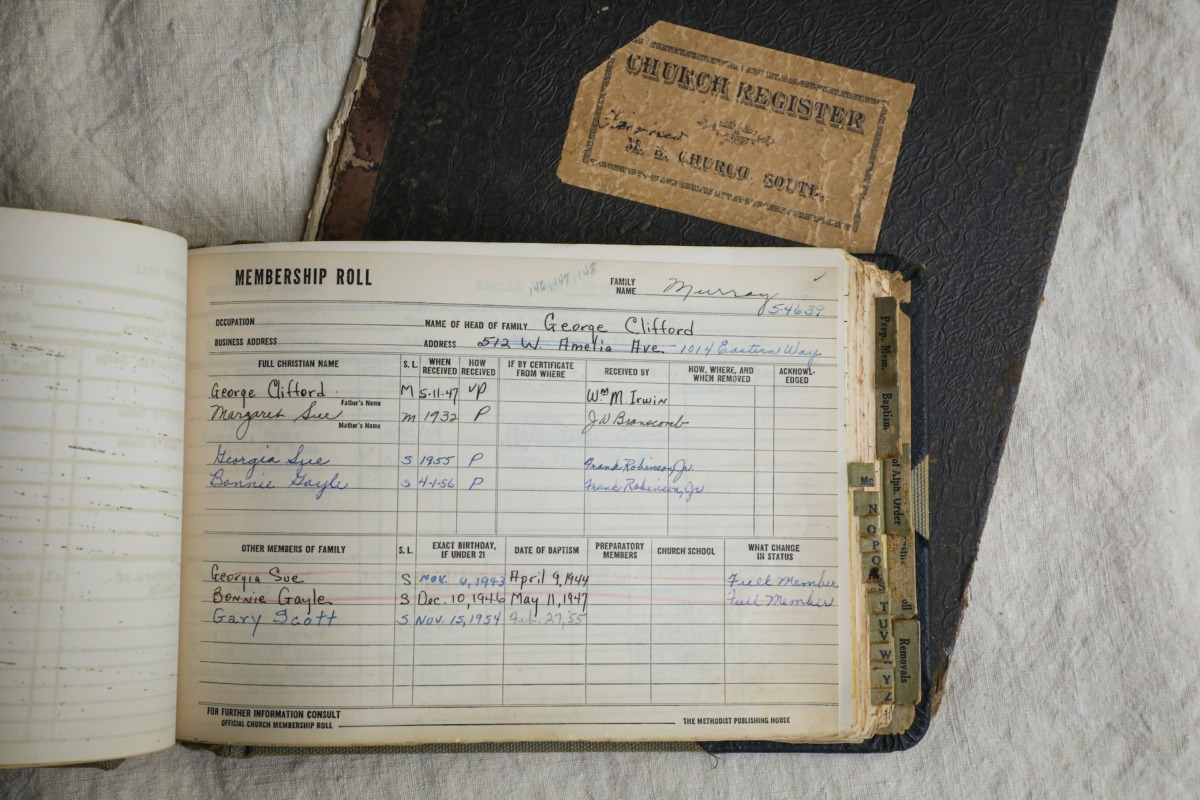 CHURCH REGISTER
M. E. CHURCH, SOUTH,
MEMBERSHIP ROLL
146, 147, 148
FAMILY NAME Murray
5-4639
OCCUPATION NAME OF HEAD OF FAMILY George Clifford
BUSINESS ADDRESS ADDRESS 512 W. Amelia Ave. 1014 Eastern Way
FULL CHRISTIAN NAME S. L. WHEN RECEIVED HOW RECEIVED IF BY CERTIFICATE FROM WHERE RECEIVED BY HOW, WHERE, AND WHEN REMOVED ACKNOWL-EDGED
George Clifford M 5-11-47 VP Wm M Irwin
Father's Name
Margaret Sue M 1932 P J W Branscomb
Mother's Name
Georgia Sue S 1955 P Frank Robinson, Jr.
Bonnie Gayle S 4-1-56 P Frank Robinson, Jr.
OTHER MEMBERS OF FAMILY S. L. EXACT BIRTHDAY, IF UNDER 21 DATE OF BAPTISM PREPARATORY MEMBERS CHURCH SCHOOL WHAT CHANGE IN STATUS
Georgia Sue S Nov. 6, 1943 April 9, 1944 Full Member
Bonnie Gayle S Dec. 10, 1946 May 11, 1947 Full Member
Gary Scott S Nov. 15, 1954 Feb. 27, 55
FOR FURTHER INFORMATION CONSULT
OFFICIAL CHURCH MEMBERSHIP ROLL THE METHODIST PUBLISHING HOUSE
Prep. Mem.
Baptism
of Alph. Order
Removals
Mc
N
O
P
Q
S
T
U
V
W
Y
Z